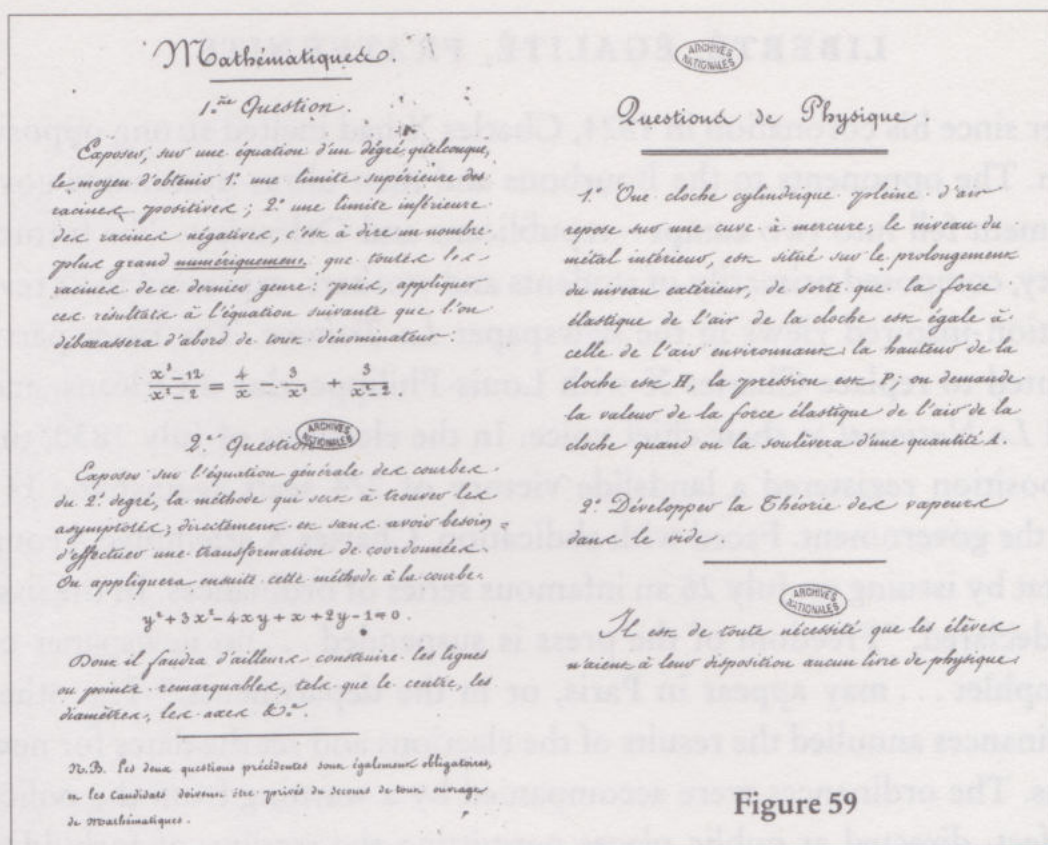 Mathématiques.
1.ère Question.
Exposer, sur une équation d'un dégré quelconque,
le moyen d'obtenir 1.° une limite supérieure des
racines positives; 2.° une limite inférieure
des racines négatives, c'est à dire un nombre
plus grand numériquement que toutes les
racines de ce dernier genre: puis, appliquer
ces résultats à l'équation suivante que l'on
débarassera d'abord de tout dénominateur
= 4/x - + 3/x-2.
2.e Question
ARCHIVES NATIONALES
Exposer sur l'équation générale des courbes
du 2.e degré, la méthode qui sert à trouver les
asymptotes, directement et sans avoir besoin
d'effectuer une transformation de coordonnées.
On appliquera ensuite cette méthode à la courbe.
y²+3x²-4xy+x+2y-1=0.
Dont il faudra d'ailleurs construire les lignes
ou points remarquables tels que le centre, les
diamètres, les axes &.a
N.B. Les deux questions précédentes sont également obligatoires,
et les candidats doivent être privés du secours de tout ouvrage
de Mathématiques.
ARCHIVES NATIONALES
Questions de Physique.
1.° Une cloche cylindrique pleine d'air
repose sur une cuve à mercure, le niveau du
métal intérieur, est situé sur le prolongement
du niveau extérieur, de sorte que la force
élastique de l'air de la cloche est égale à
celle de l'air environnant: la hauteur de la
cloche est H, la pression est P; on demande
la valeur de la force élastique de l'air de la
cloche quand on la soulèvera d'une quantité
2.° Développer la Théorie des vapeurs
dans le vide.
ARCHIVES NATIONALES
Il est de toute nécessité que les élèves
n'aient à leur disposition aucun livre de physique.
Figure 59